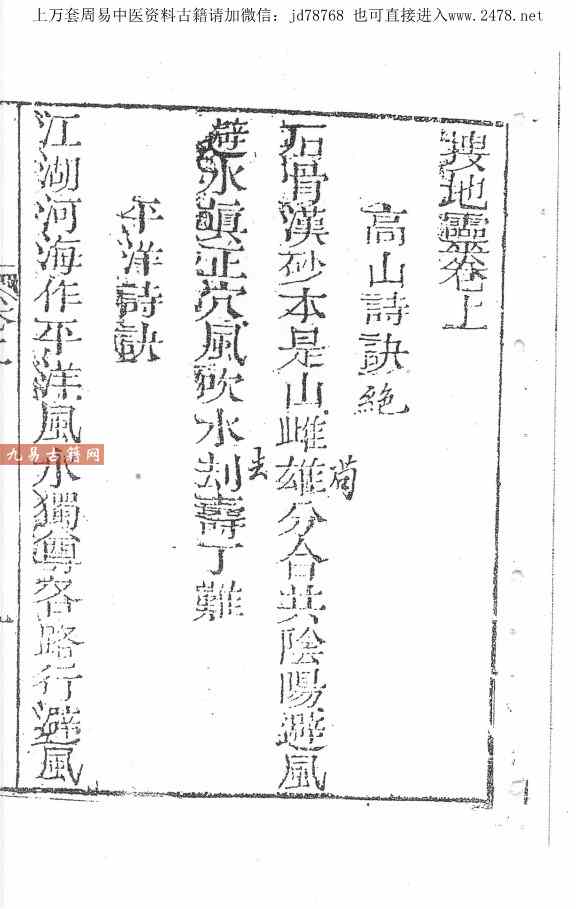 上万套周易中医资料古籍请加微信：jd78768 也可直接进入www.2478.net
搜地靈卷上
高山詩訣絕
石骨漢砂本是山雌雄分合共陰陽避風
避水真正穴風吹水刦壽丁難
平洋詩訣
江湖河海作平洋風水獨尊各路行避風
九易古籍网